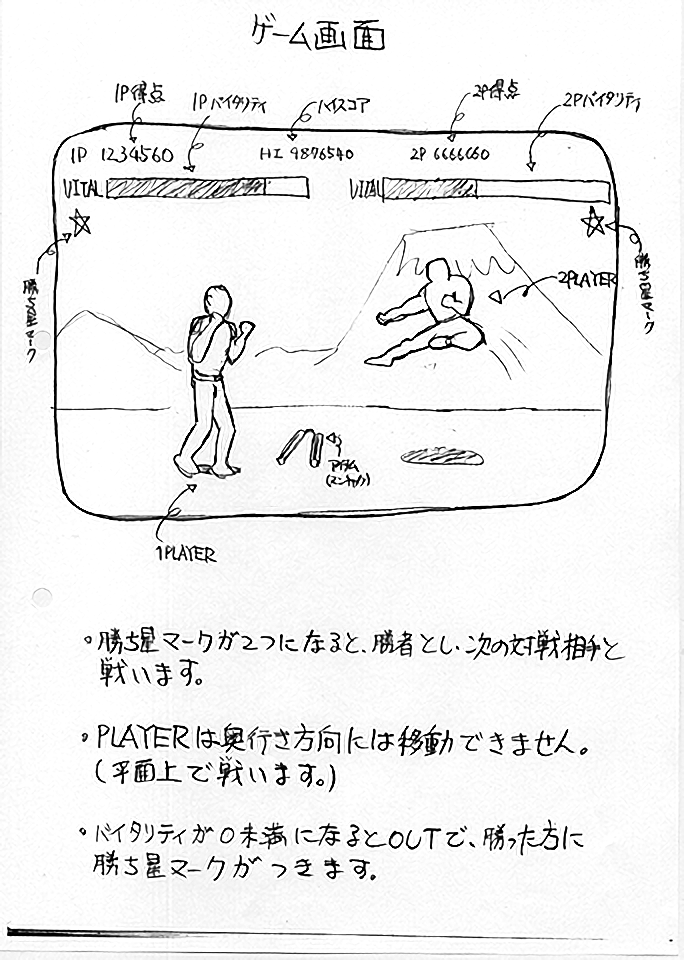 ゲーム画面
1P得点
1Pバイタリティ
ハイスコア
2P得点
2Pバイタリティ
1P 1234560
HI 9876540
2P 6666660
VITAL
VITAL
勝ち星マーク
勝ち星マーク
2PLAYER
アイテム
(ヌンチャク)
1PLAYER
。勝ち星マークが2つになると、勝者とし、次の対戦相手と
戦います。
。PLAYERは奥行き方向には移動できません。
(平面上で戦います。)
。バイタリティが0未満になるとOUTで、勝った方に
勝ち星マークがつきます。